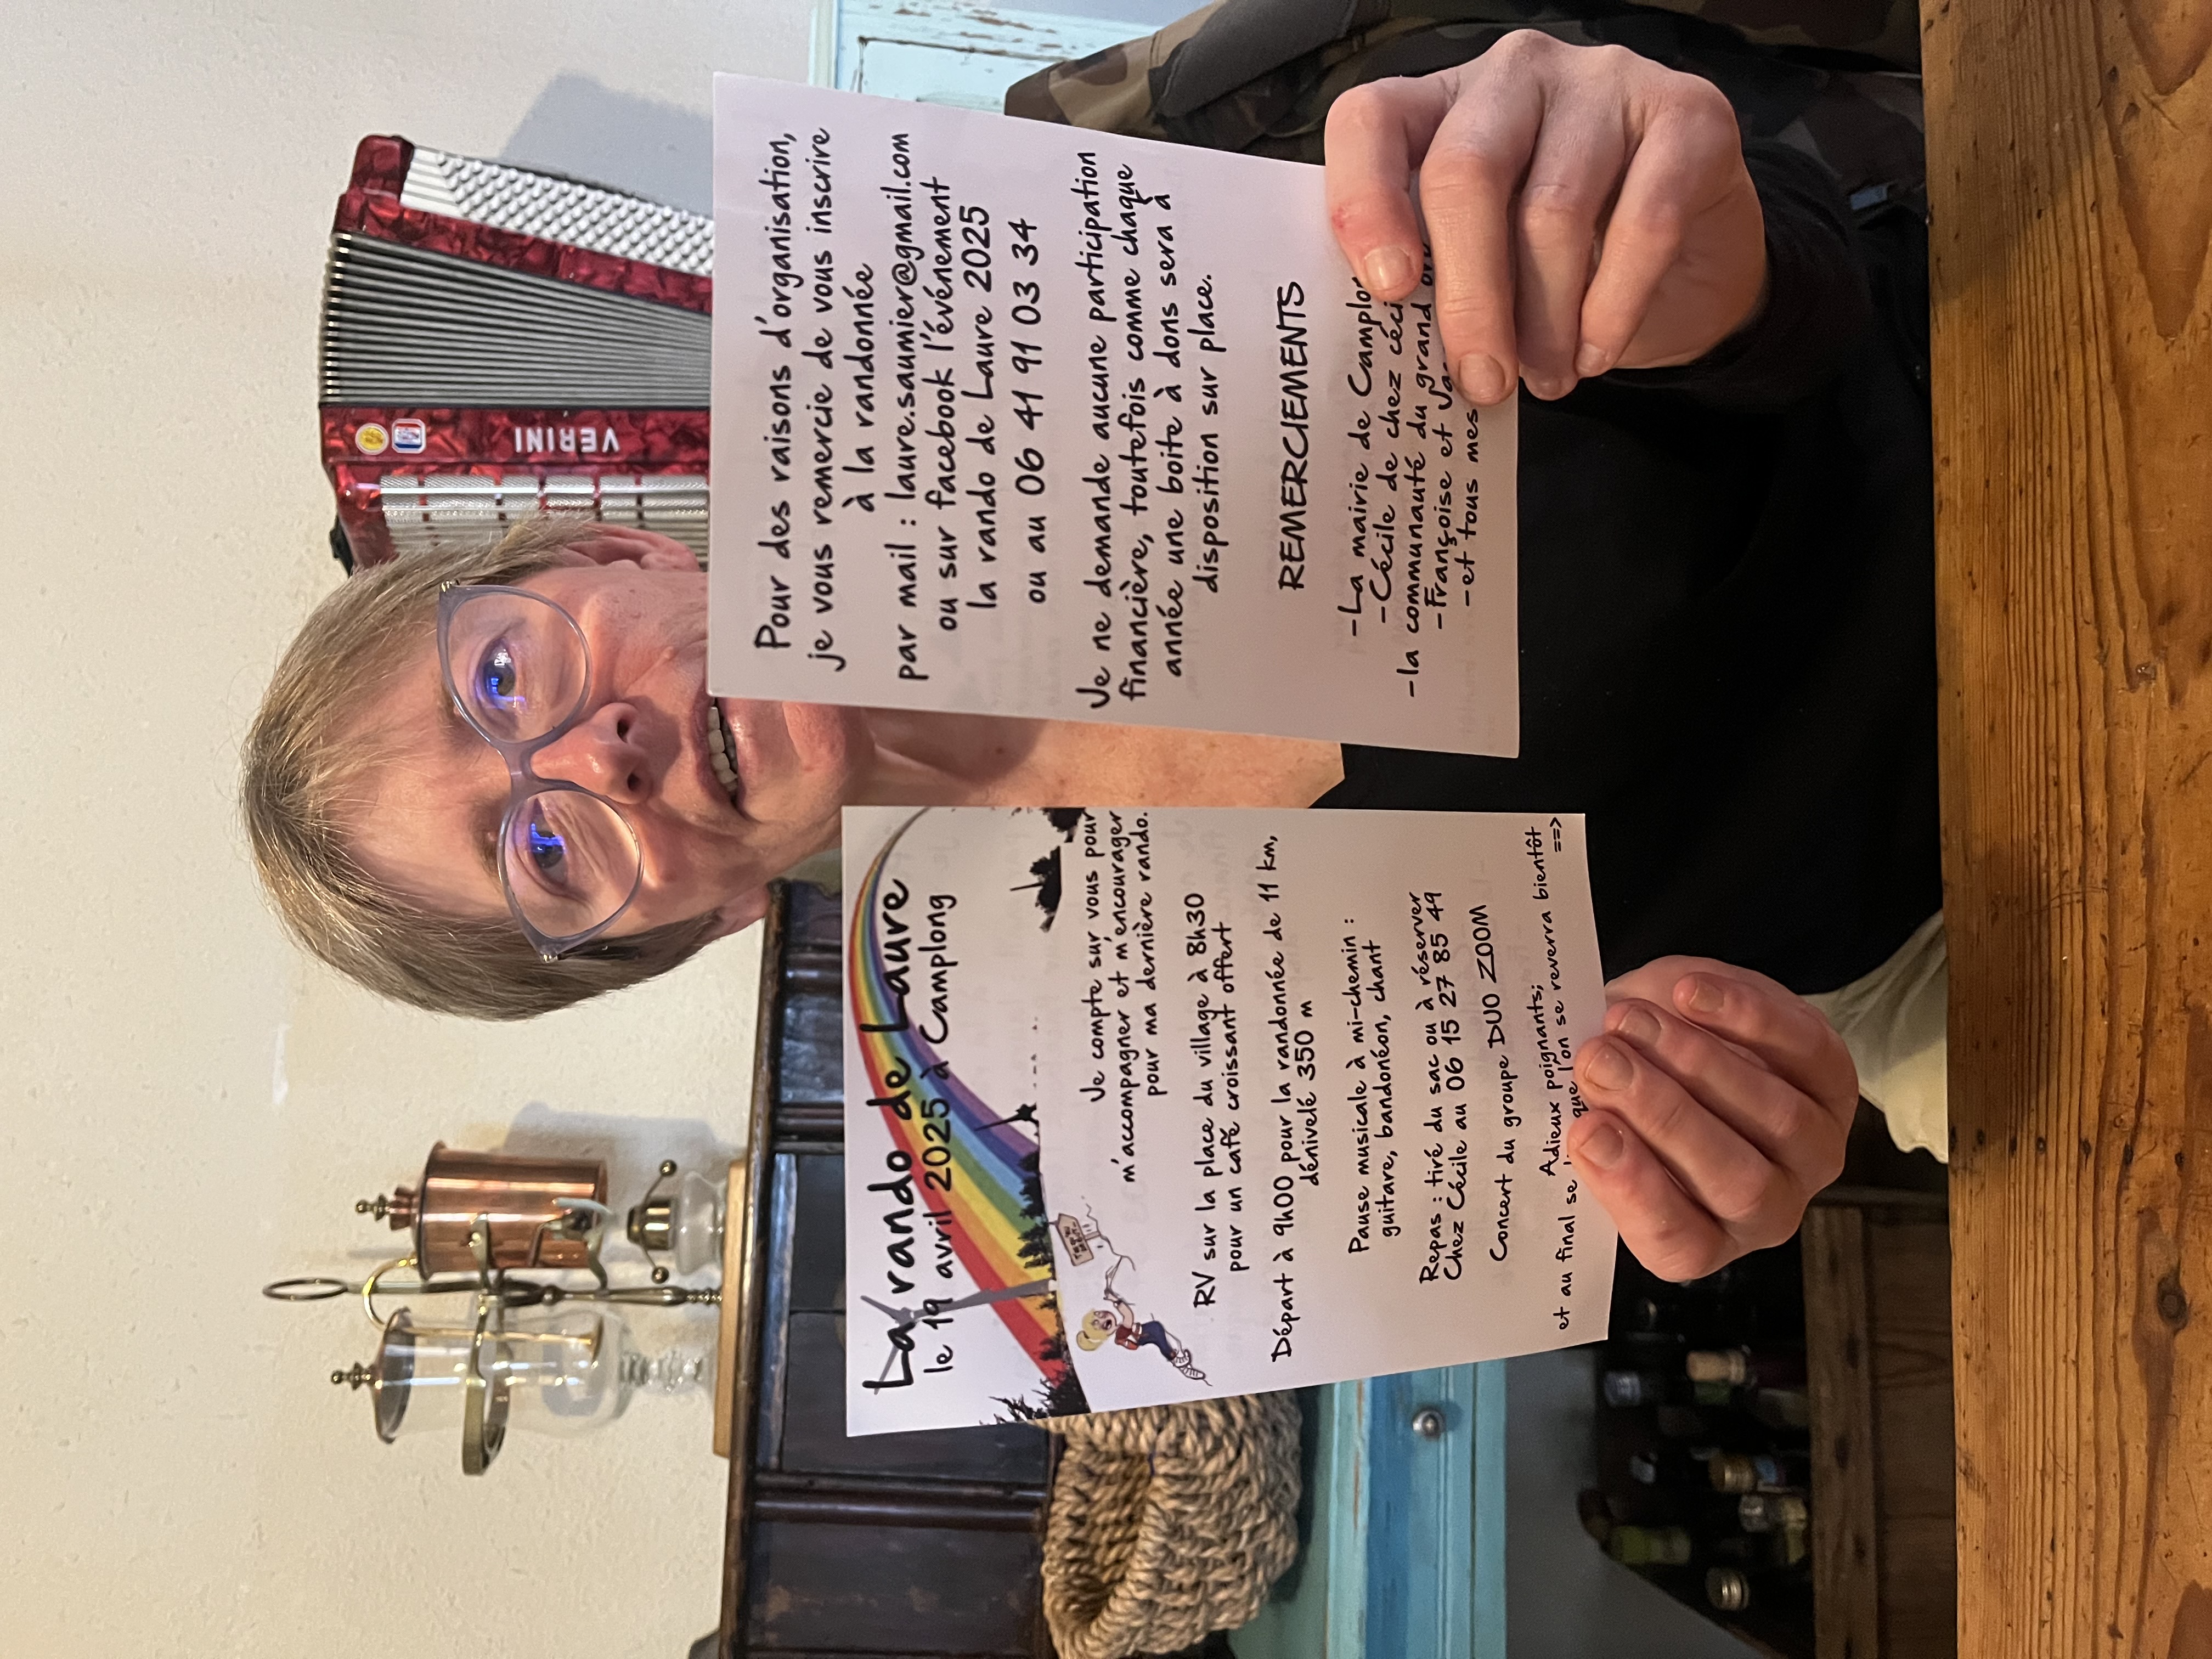 La rando de Laure
le 19 avril 2025 à Camplong
Je compte sur vous pour
m'accompagner et m'encourager
pour ma dernière rando.
RV sur la place du village à 8h30
pour un café croissant offert
Départ à 9h00 pour la randonnée de 11 km,
dénivelé 350 m
Pause musicale à mi-chemin :
guitare, bandonéon, chant
Repas : tiré du sac ou à réserver
Chez Cécile au 06 15 27 85 49
Concert du groupe DUO ZOOM
Adieux poignants;
et au final se que l'on se reverra bientôt
==>
Pour des raisons d'organisation,
je vous remercie de vous inscrire
à la randonnée
par mail : laure.saumier@gmail.com
ou sur facebook l'événement
la rando de Laure 2025
ou au 06 41 91 03 34
Je ne demande aucune participation
financière, toutefois comme chaque
année une boite à dons sera à
disposition sur place.
REMERCIEMENTS
-La mairie de Camplon
-Cécile de chez céci
-la communauté du grand
-Françoise et
-et tous mes
VERINI